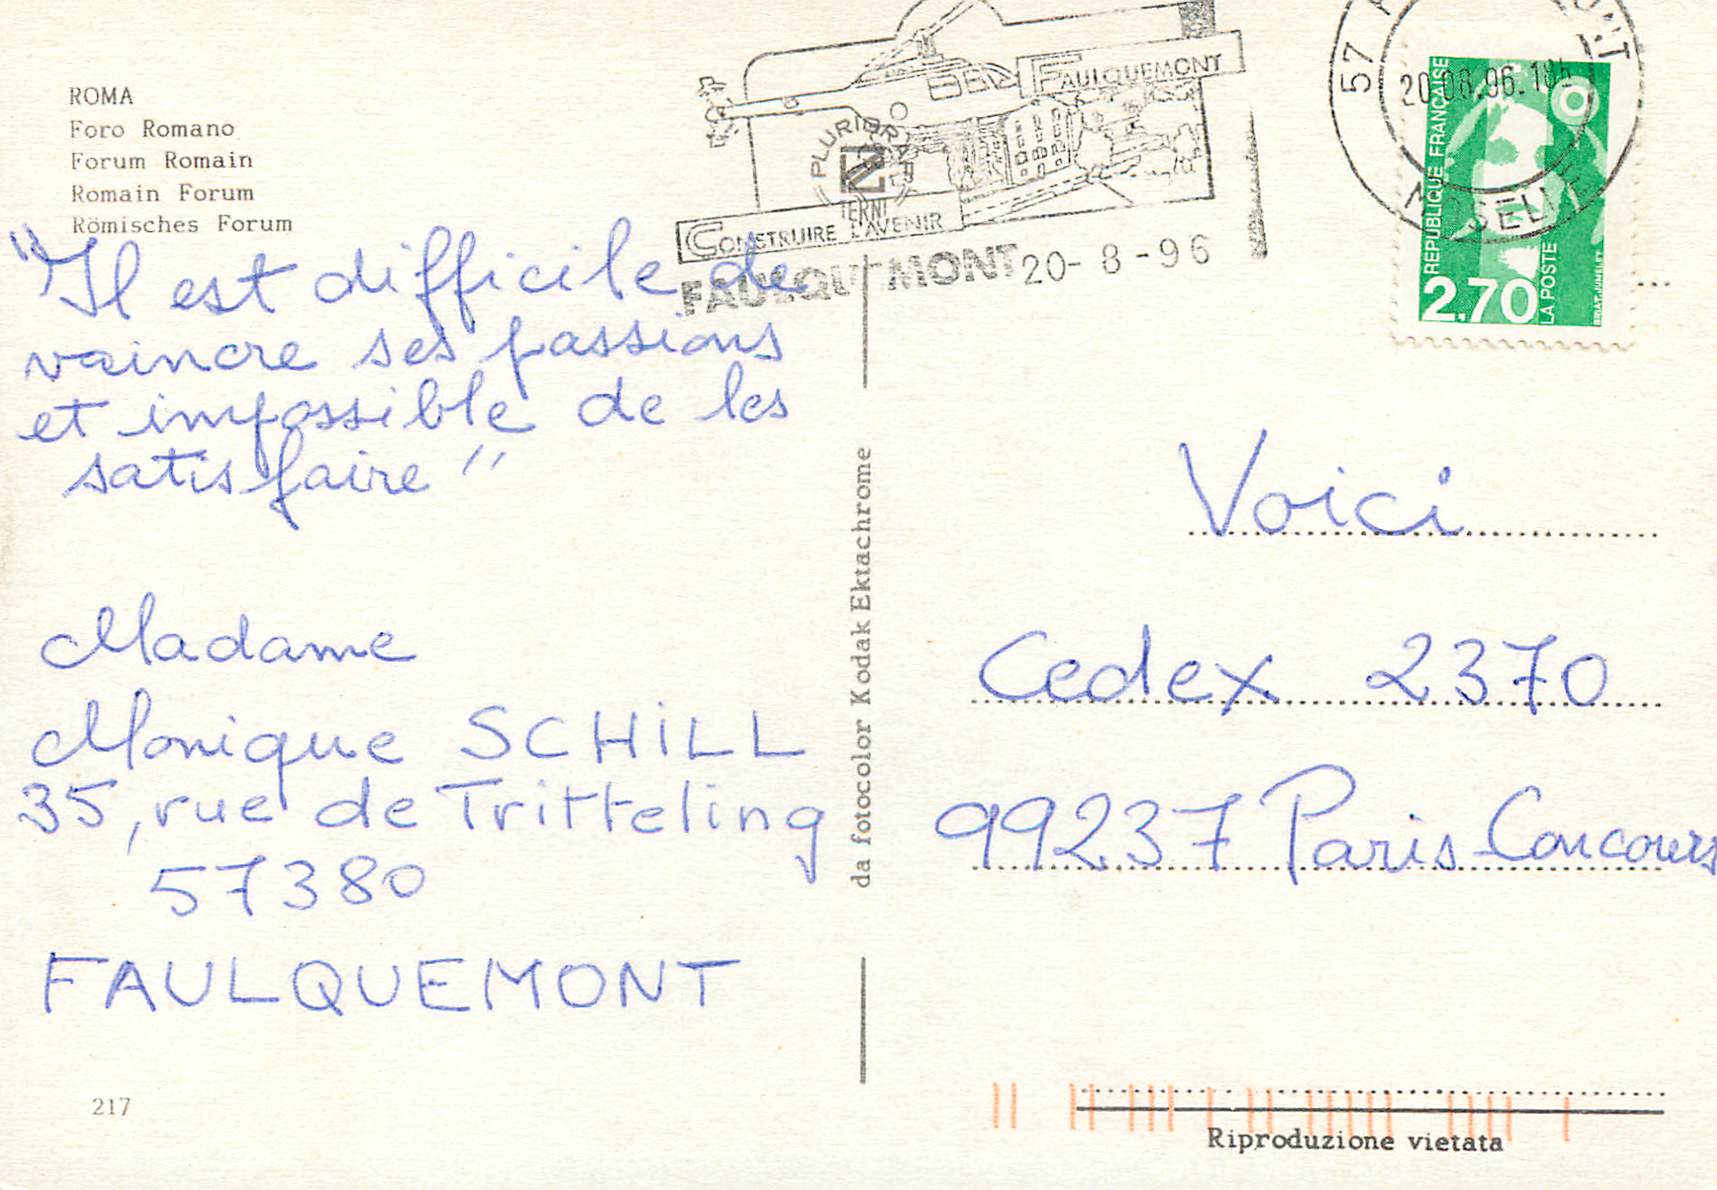 ROMA
Foro Romano
Forum Romain
Romain Forum
Römisches Forum
"Il est difficile de
vaincre ses passions
et impossible de les
satisfaire"
Madame
Monique SCHILL
35, rue de Tritteling
57380
FAULQUEMONT
217
FAULQUEMONT
PLURIGRAF
TERNI
CONSTRUIRE L'AVENIR
FAULQUEMONT 20-8-96
da fotocolor Kodak Ektachrome
57
20.08.96.18H
MOSELLE
REPUBLIQUE FRANÇAISE
2.70
LA POSTE
Voici
Cedex 2370
99237 Paris Concours
Riproduzione vietata